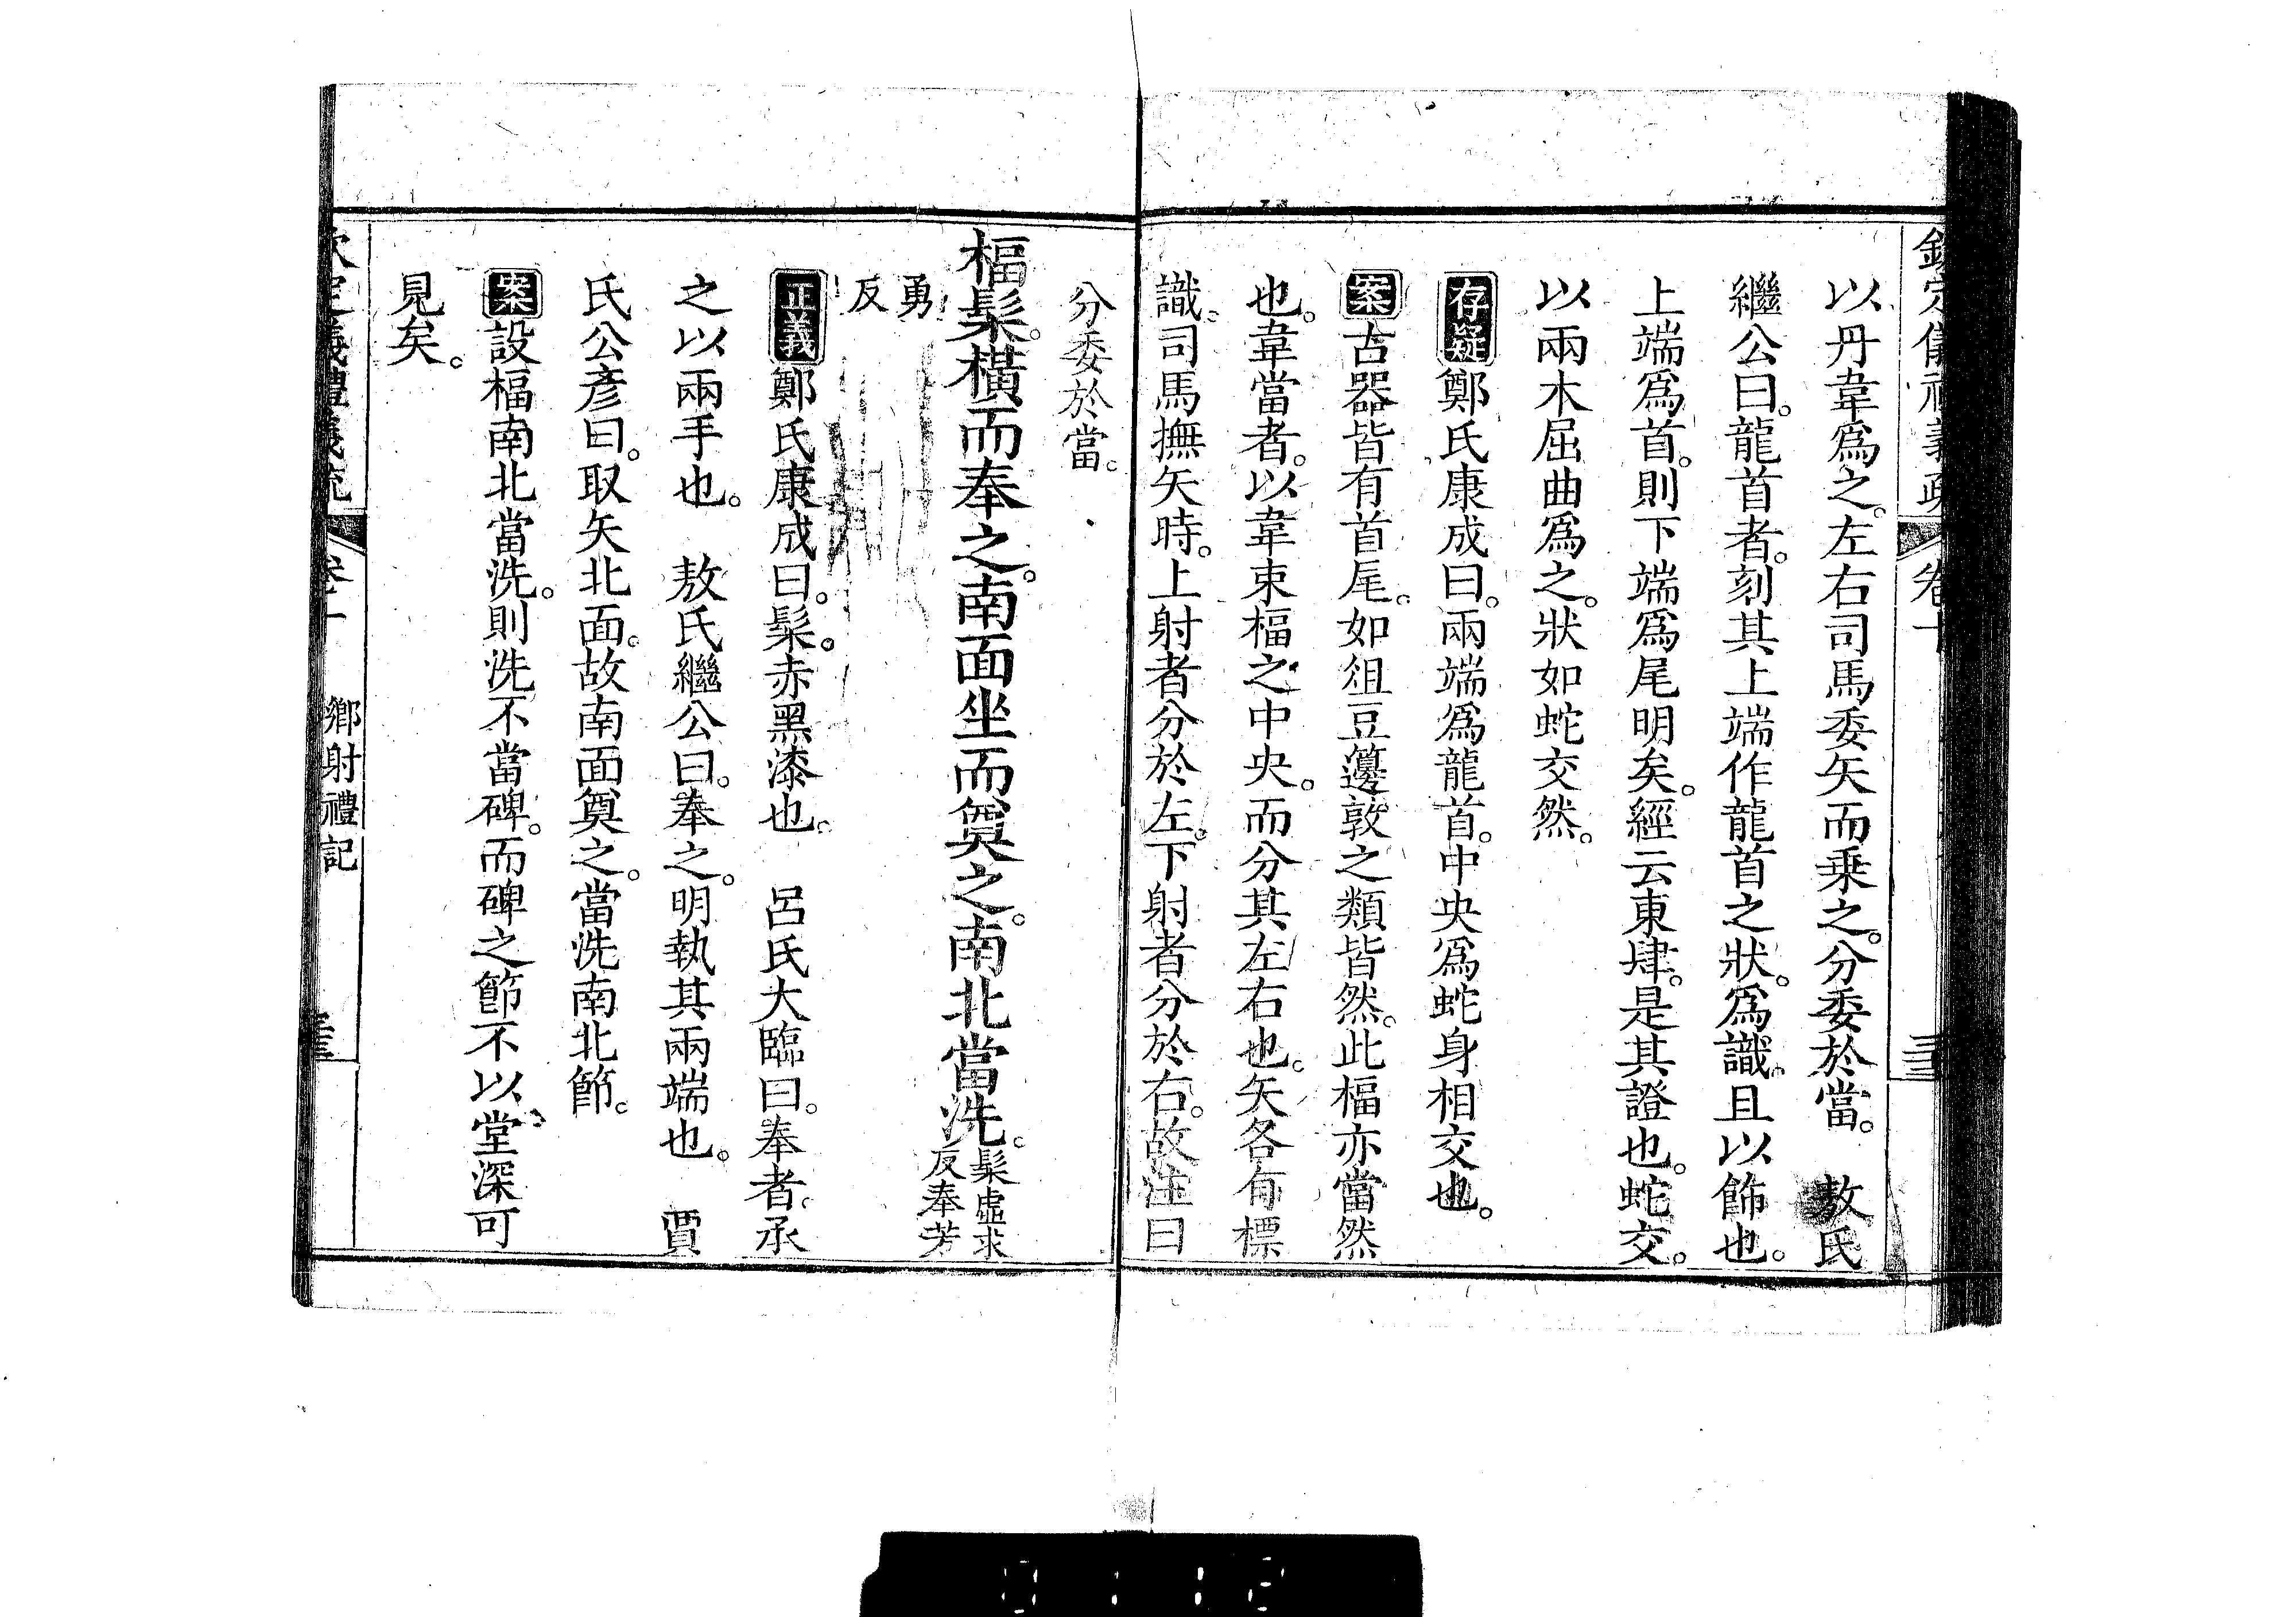 以丹韋爲之。左右司馬委矢而乘之。分委於當。　敖氏
繼公曰。龍首者。刻其上端作龍首之狀。爲識。且以飾也。
上端爲首。則下端爲尾明矣。經云東肆。是其證也。蛇交。
以兩木屈曲爲之。狀如蛇交然。
存疑鄭氏康成曰。兩端爲龍首。中央爲蛇身相交也。
案古器皆有首尾。如俎豆籩敦之類皆然。此楅亦當然
也。韋當者。以韋束楅之中央。而分其左右也。矢各有標
識。司馬撫矢時。上射者分於左。下射者分於右。故注曰
分委於當。
楅髤。橫而奉之。南面坐而奠之。南北當洗。髤虛求
反奉芳
勇
反
正義鄭氏康成曰。髤。赤黑漆也。　呂氏大臨曰。奉者。承
之以兩手也。　敖氏繼公曰。奉之。明執其兩端也。　賈
氏公彥曰。取矢北面。故南面奠之。當洗南北節。
案設楅南北當洗。則洗不當碑。而碑之節不以堂深可
見矣。
鄉射禮記